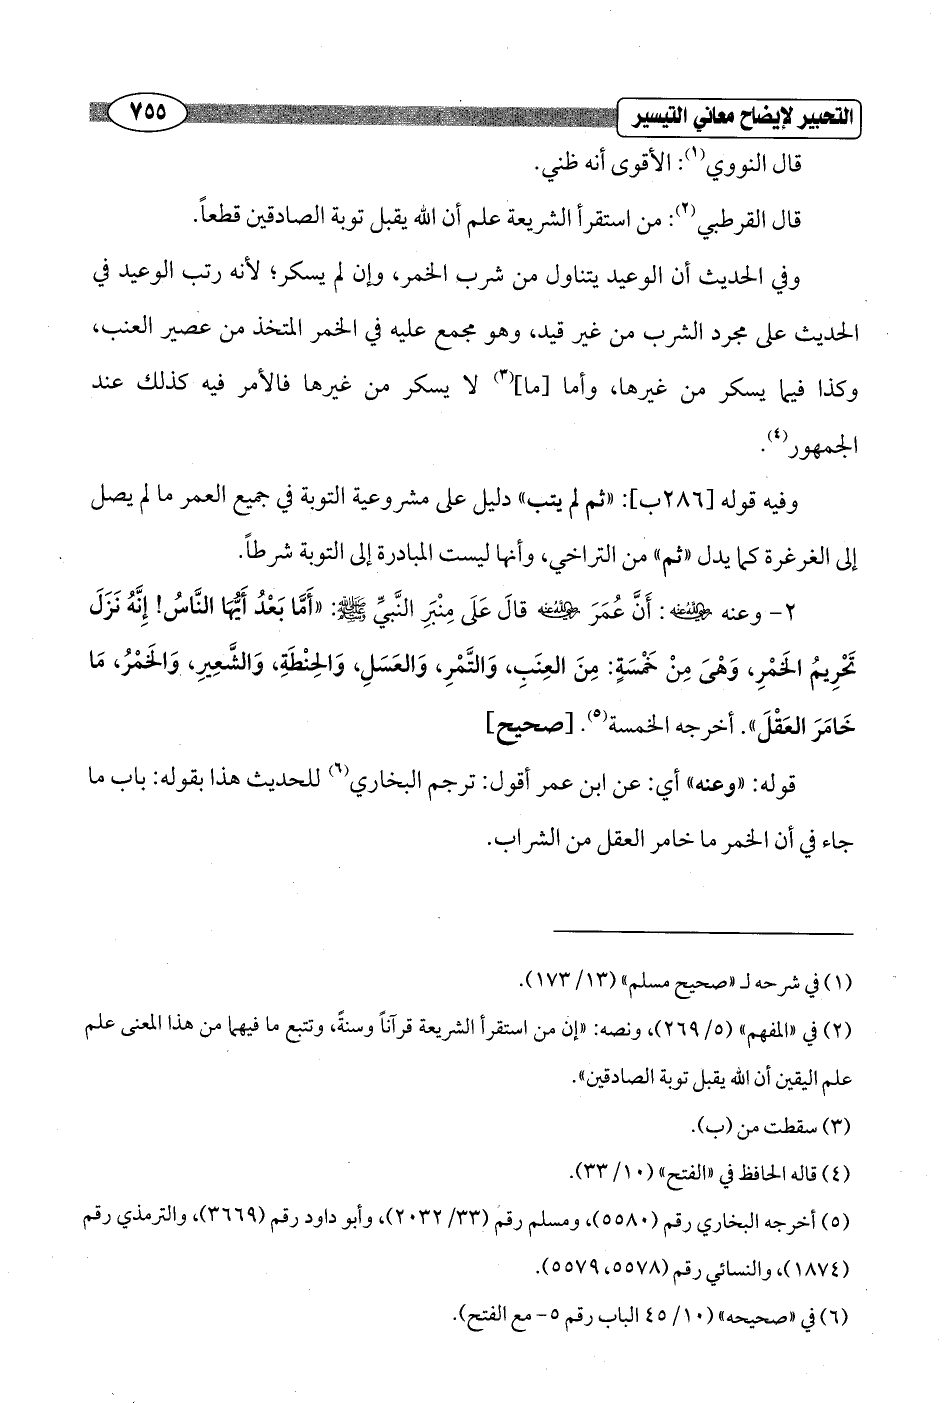 التحبير لإيضاح معاني التيسير ٧٥٥
قال النووي(١): الأقوى أنه ظني.
قال القرطبي(٢): من استقرأ الشريعة علم أن الله يقبل توبة الصادقين قطعاً.
وفي الحديث أن الوعيد يتناول من شرب الخمر، وإن لم يسكر؛ لأنه رتب الوعيد في
الحديث على مجرد الشرب من غير قيد، وهو مجمع عليه في الخمر المتخذ من عصير العنب،
وكذا فيما يسكر من غيرها، وأما [ما](٣) لا يسكر من غيرها فالأمر فيه كذلك عند
الجمهور(٤).
وفيه قوله [٢٨٦ب]: «ثم لم يتب» دليل على مشروعية التوبة في جميع العمر ما لم يصل
إلى الغرغرة كما يدل «ثم» من التراخي، وأنها ليست المبادرة إلى التوبة شرطاً.
٢- وعنه رضي الله عنه: أَنَّ عُمَرَ رضي الله عنه قالَ عَلَى مِنْبَرِ النَّبيِّ ﷺ: «أَمَّا بَعْدُ أَيُّهَا النَّاسُ! إِنَّهُ نَزَلَ
تَحْرِيمُ الخَمْرِ، وَهْىَ مِنْ خَمْسَةٍ: مِنَ العِنَبِ، وَالتَّمْرِ، وَالعَسَلِ، وَالحِنْطَةِ، وَالشَّعِيرِ، وَالخَمْرُ، مَا
خَامَرَ العَقْلَ». أخرجه الخمسة(٥). [صحيح]
قوله: «وعنه» أي: عن ابن عمر أقول: ترجم البخاري(٦) للحديث هذا بقوله: باب ما
جاء في أن الخمر ما خامر العقل من الشراب.
(١) في شرحه لـ «صحيح مسلم» (١٣/ ١٧٣).
(٢) في «المفهم» (٥/ ٢٦٩)، ونصه: «إن من استقرأ الشريعة قرآناً وسنةً، وتتبع ما فيهما من هذا المعنى علم
علم اليقين أن الله يقبل توبة الصادقين».
(٣) سقطت من (ب).
(٤) قاله الحافظ في «الفتح» (١٠/ ٣٣).
(٥) أخرجه البخاري رقم (٥٥٨٠)، ومسلم رقم (٣٣/ ٢٠٣٢)، وأبو داود رقم (٣٦٦٩)، والترمذي رقم
(١٨٧٤)، والنسائي رقم (٥٥٧٨، ٥٥٧٩).
(٦) في «صحيحه» (١٠/ ٤٥ الباب رقم ٥- مع الفتح).